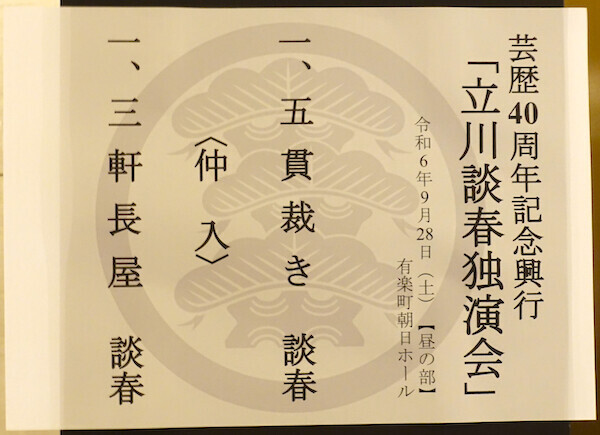 芸歴40周年記念興行
「立川談春独演会」
令和6年9月28日（土）【昼の部】
有楽町朝日ホール
一、五貫裁き　談春
〈仲入〉
一、三軒長屋　談春